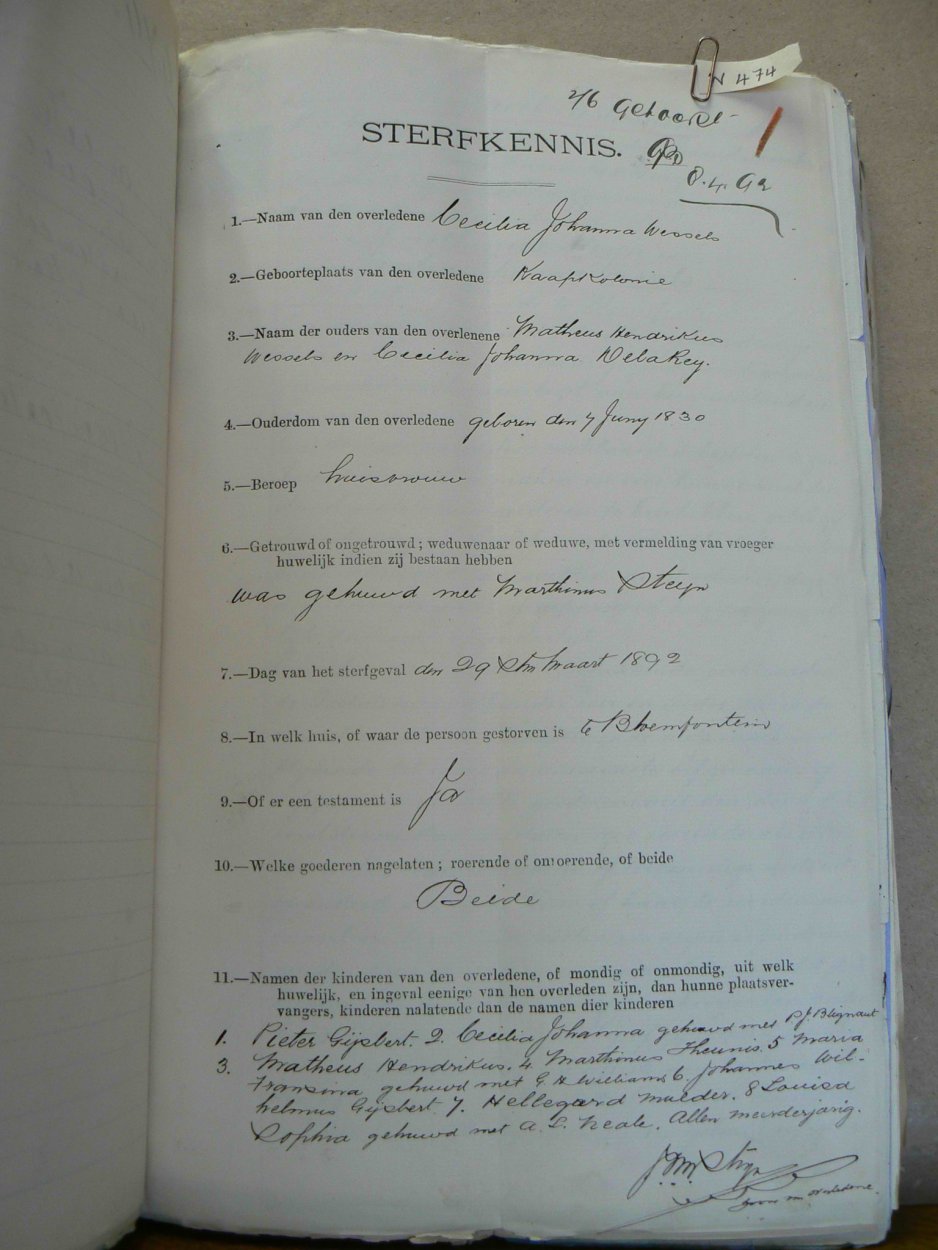 N 474
2/6 Geboort
STERFKENNIS.
8.4.92
1.—Naam van den overledene Cecilia Johanna Wessels
2.—Geboorteplaats van den overledene Kaapkolonie
3.—Naam der ouders van den overlenene Matheus Hendrikus
Wessels en Cecilia Johanna De la Rey.
4.—Ouderdom van den overledene geboren den 7 Juny 1830
5.—Beroep huisvrouw
6.—Getrouwd of ongetrouwd; weduwenaar of weduwe, met vermelding van vroeger
huwelijk indien zij bestaan hebben
was gehuwd met Marthinus Steyn
7.—Dag van het sterfgeval den 29 Stn Maart 1892
8.—In welk huis, of waar de persoon gestorven is te Bloemfontein
9.—Of er een testament is Ja
10.—Welke goederen nagelaten; roerende of onroerende, of beide
Beide
11.—Namen der kinderen van den overledene, of mondig of onmondig, uit welk
huwelijk, en ingeval eenige van hen overleden zijn, dan hunne plaatsver-
vangers, kinderen nalatende dan de namen dier kinderen
1. Pieter Gijsbert. 2. Cecilia Johanna gehuwd met P. J. Blignaut
3. Matheus Hendrikus. 4 Marthinus Theunis. 5 Maria
Fransina gehuwd met G. H. Williams 6. Johannes Wil-
helmus Gijsbert. 7. Hellegaard Mulder. 8 Louisa
Sophia gehuwd met A. L. Neale. Allen meerderjarig.
Steyn
zoon van overledene.